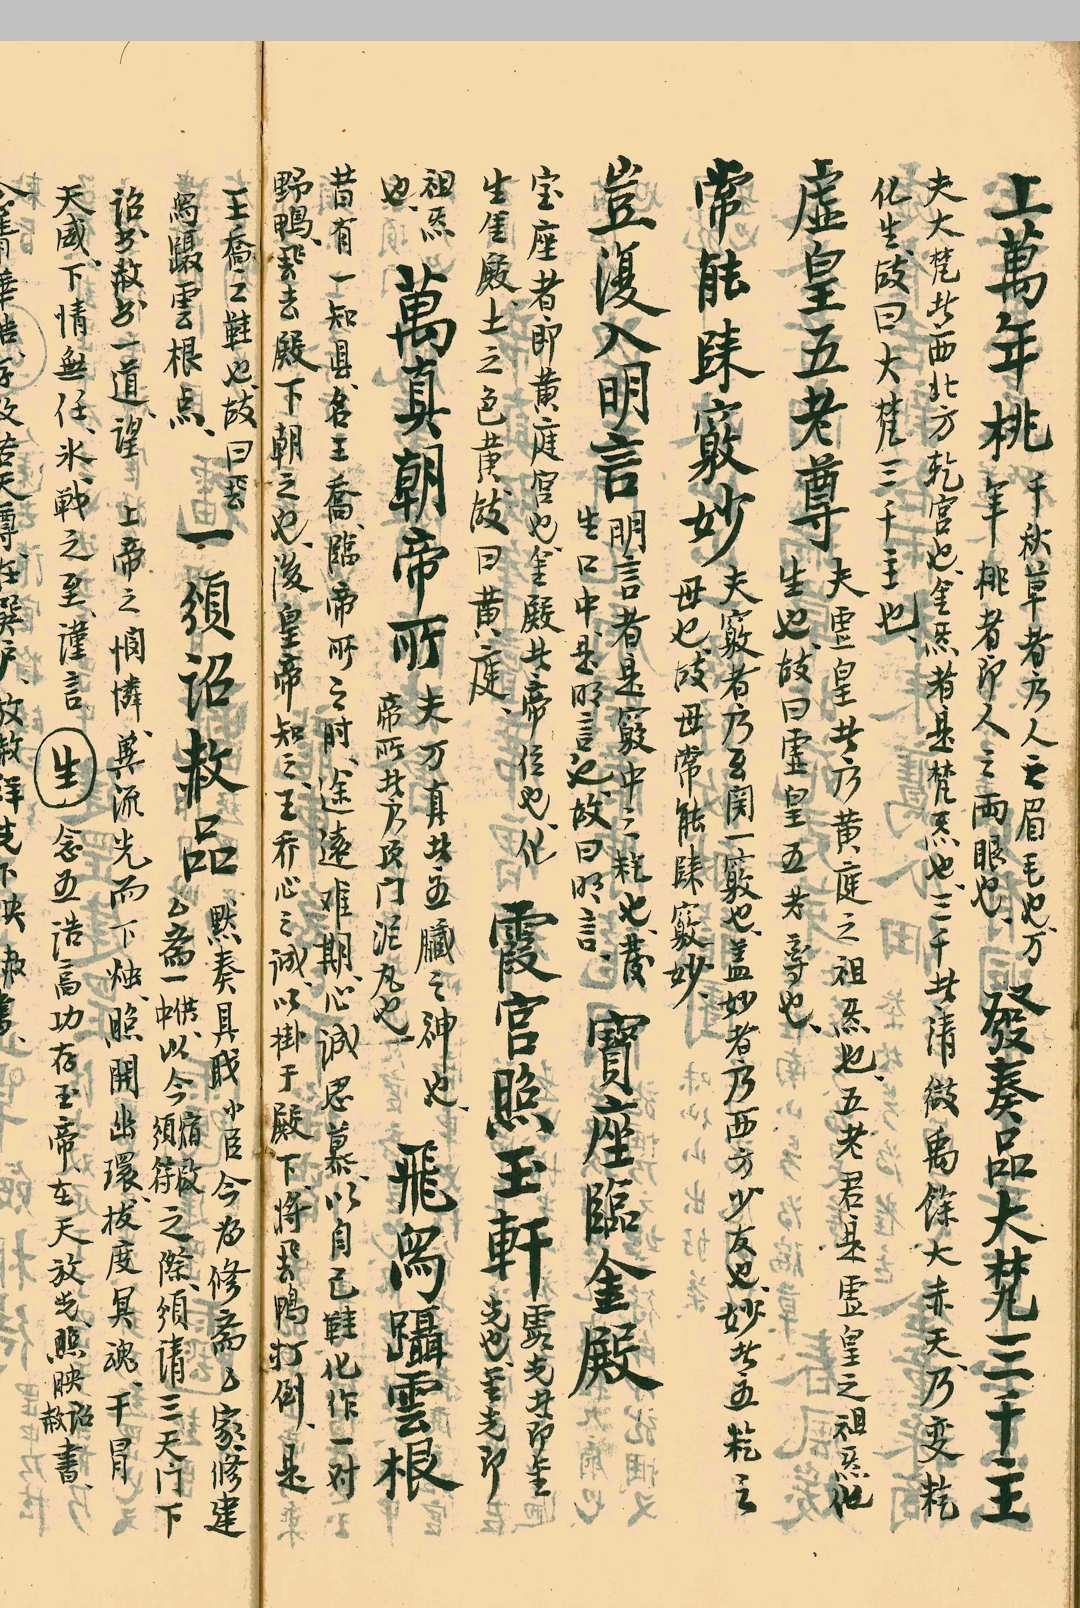 上萬年桃 千秋草者乃人之眉毛也万
年桃者即人之兩眼也 發奏品大梵三千主
夫大梵此西北方乾宮也金炁者是梵炁也三千此清微禹餘大赤天乃变乾
化生故曰大梵三千主也
虛皇五老尊 夫虛皇此乃黃庭之祖炁也五老君是虛皇之祖炁化
生也故曰虛皇五老尊也
常能踈竅妙 夫竅者乃玄関一竅也盖妙者乃西方少友也妙此五乾之
母也故母常能踈竅妙
豈復入明言 明言者是竅中之乾也
生口中是明言也故曰明言 寶座臨金殿
宝座者即黃庭宮也金殿此帝位也化
生金殿土之色黃故曰黃庭 霞宮照玉軒 霞光此即金
光也金光即
祖炁
也 萬真朝帝所 夫万真此五臟之神也
帝所此乃頂門泥丸也 飛舄躡雲根
昔有一知县名王喬臨帝所之时途遠难期心誠思慕以自己鞋化作一对
野鴨飛去殿下朝之也後皇帝知之王乔心之誠以掛于殿下將飛去鴨打倒是
王喬之鞋也故曰飛
舄躡雲根点 一須詔赦品 默奏具職小臣今为修斋厶家修建
厶斋一中供以今宿啟須符之際須请三天门下
詔书赦书一道望 上帝之憫憐兾流光而下烛照開出環拔度冥魂干冒
天威下情無任氷戰之至謹言 生 念五浩高功存玉帝在天放光照映詔赦書